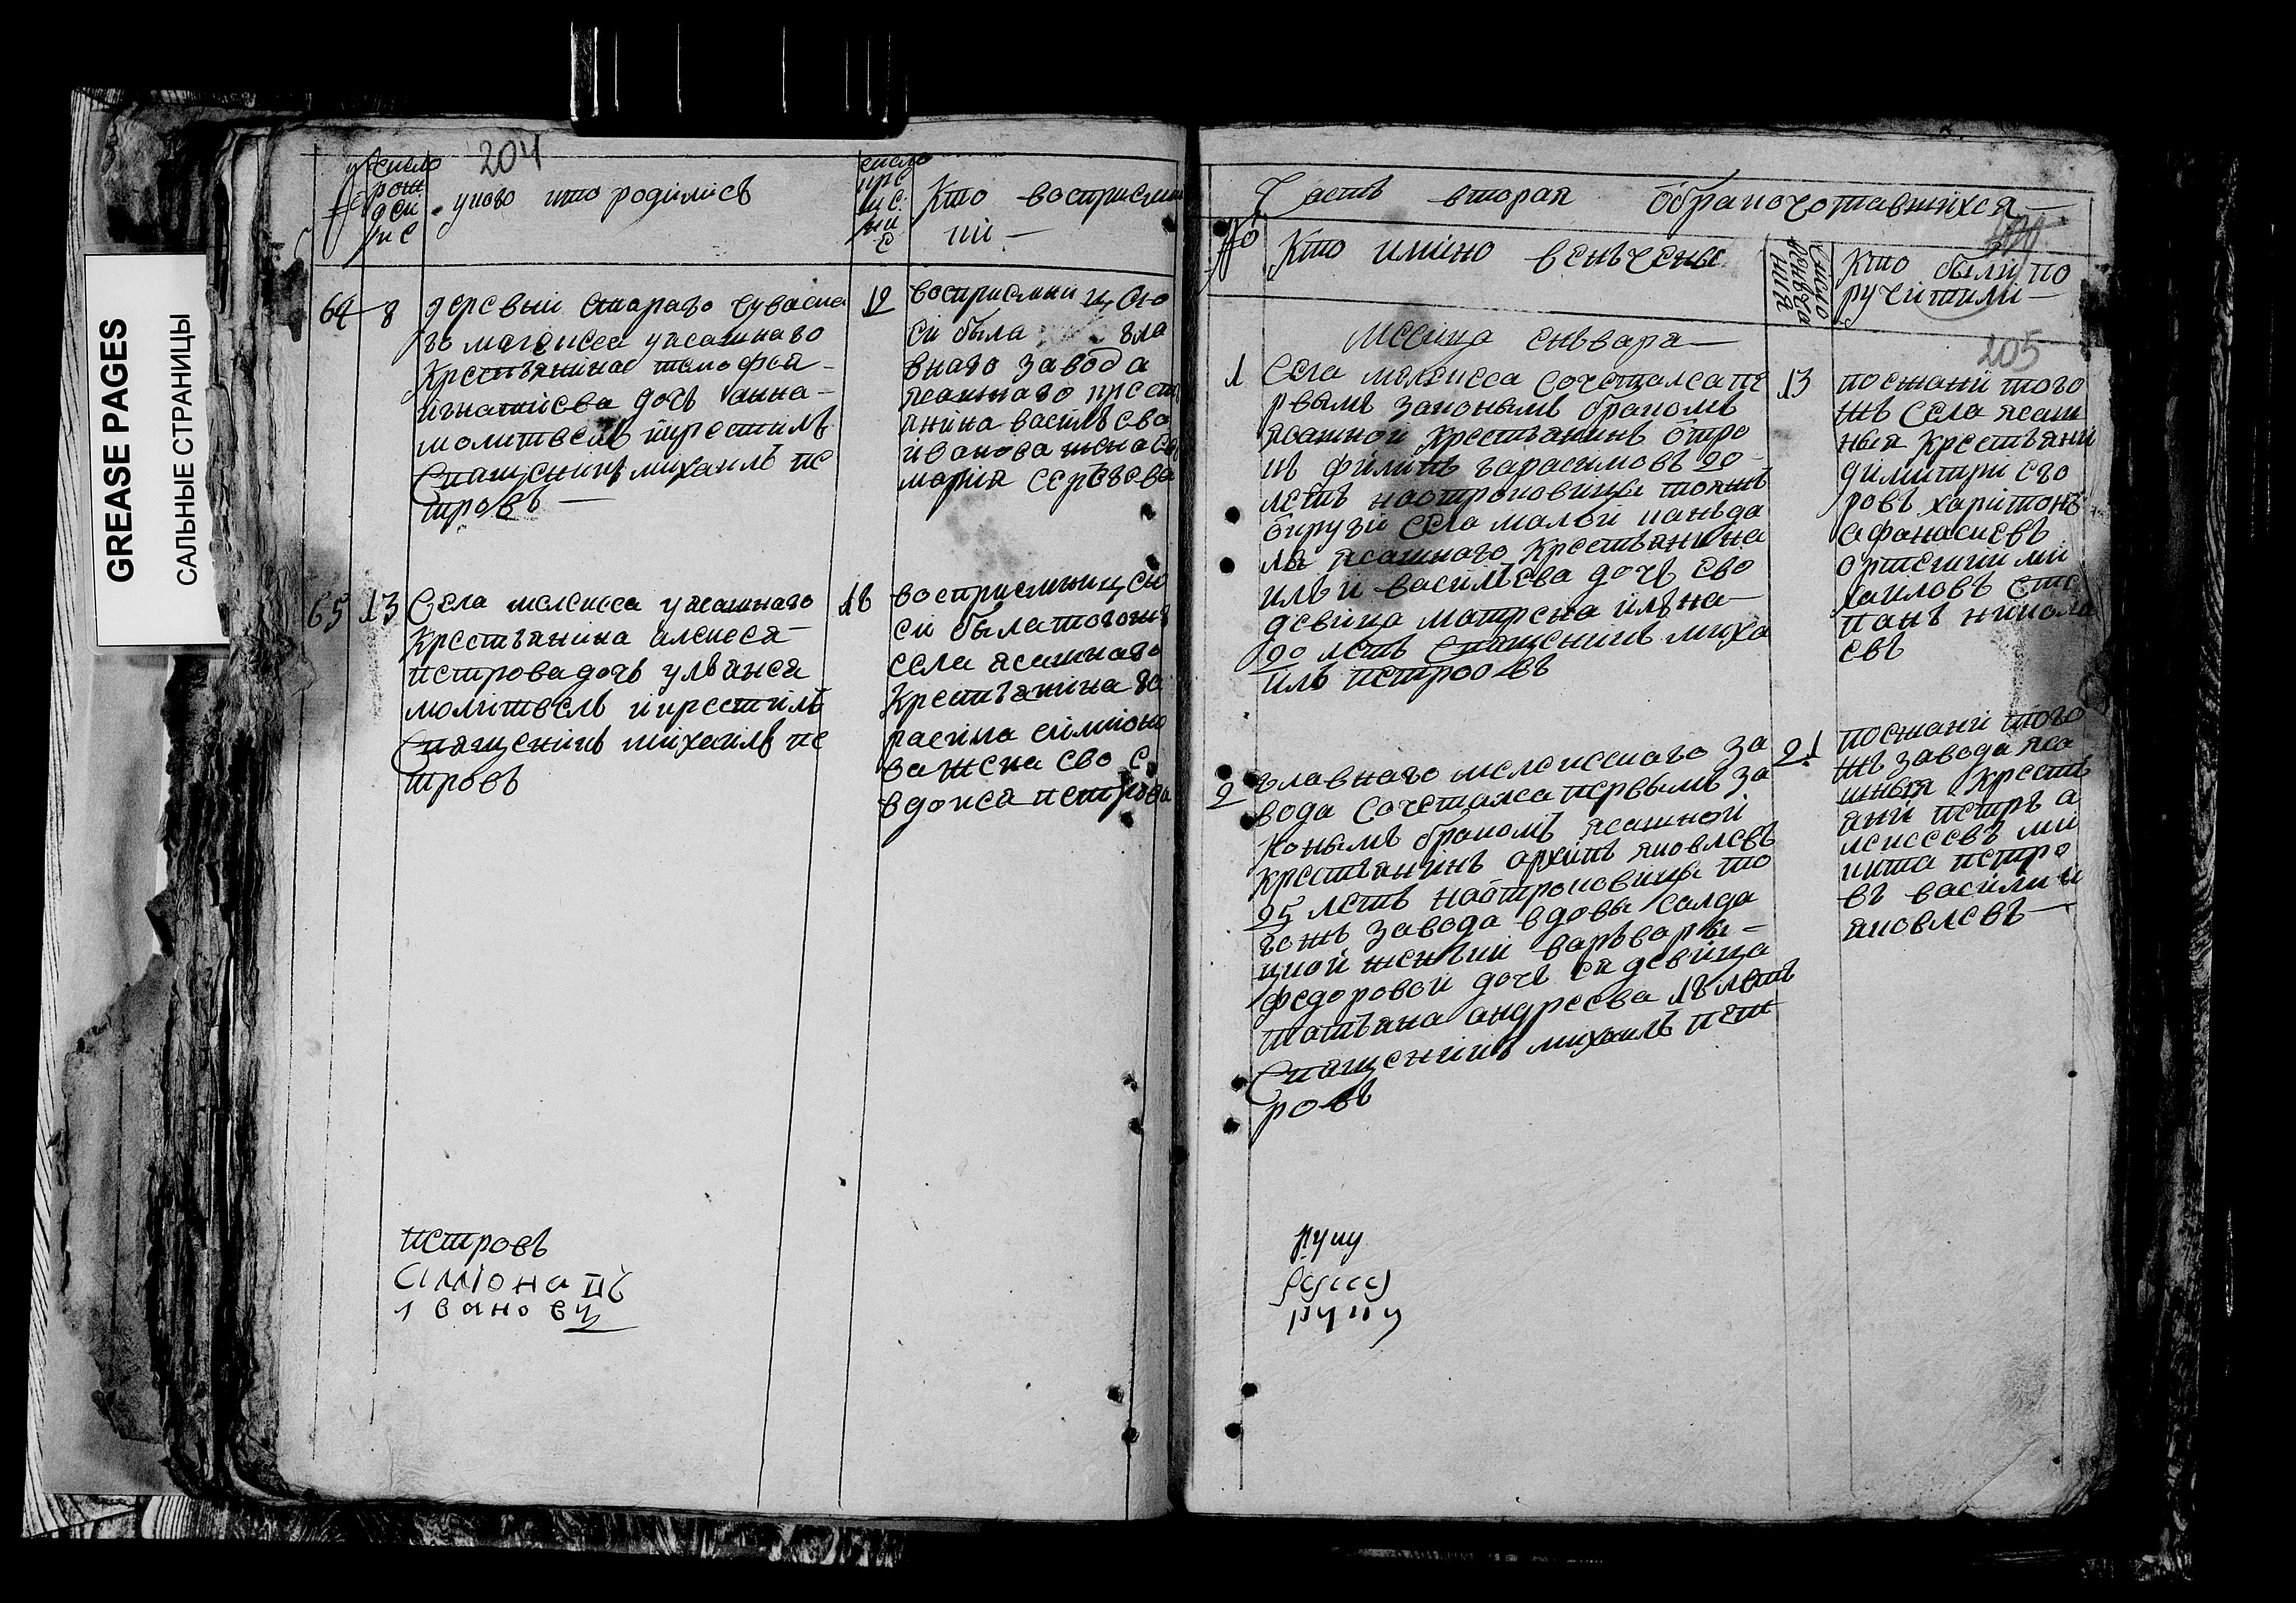 GREASE PAGES
САЛЬНЫЕ СТРАНИЦЫ
204
№
число
рож
дени
и е
укого кто родились
число
кре
ще
ний
е
Кто восприемни
ки —
64
8
деревни Стараго Чуваска
го мелекеса уясашнаго
Крестьянина тимофея
игнатиева дочь анна —
молитвелъ икрестилъ
Священникъ михаилъ пе
тровъ —
12
восприемницою
ей была гла
внаго завода
ясашнаго крест
янина васильева
иванова жена
мария сергеева
65
13
Села мелекеса уясашнаго
Крестьянина алексея —
петрова дочь ульянея
молитвелъ икрестилъ
Священникъ михаилъ пе
тровъ
18
восприемницею
ей была тогожъ
села ясашнаго
Крестьянина га
расима симионо
ва жена ево е
вдокея петрова
петровъ
Симиона пъ
ивановъ
Часть вторая обракочотавшихся —
205
№
Кто имяно веньчены
число
веньча
ния
кто были по
ручители —
Месеца еньваря —
1
Села мелекеса Сочеталса пе
рвымъ законымъ бракомъ
ясашной Крестьянинъ отро
къ филипъ гарасимовъ 20
летъ наотроковице тояжъ
округи Села малой каньда
лы ясашнаго Крестьянина
ильи василева дочь ево
девица матрена ильна —
20 летъ Священникъ миха
илъ петровъ
13
посжани того
жъ Села ясаш
ныя Крестьяни
димитри его
ровъ харитонъ
афанасиевъ
ортемии ми
хаиловъ сте
панъ никола
евъ
2
главнаго мелекескаго за
вода Сочеталса первымъ за
конымъ бракомъ ясашной
крестьянинъ архипъ яковлевъ
25 летъ наотроковице то
гожъ завода вдовы салда
цкой женъки варьвары —
федоровой дочь ея девица
татьяна андреева 18 летъ
Священникъ михаилъ пет
ровъ
21
посжани того
жъ завода яса
шныя Кресть
яни петръ а
лексеевъ ми
кита петро
въ василии
яковлевъ —
руку
руку